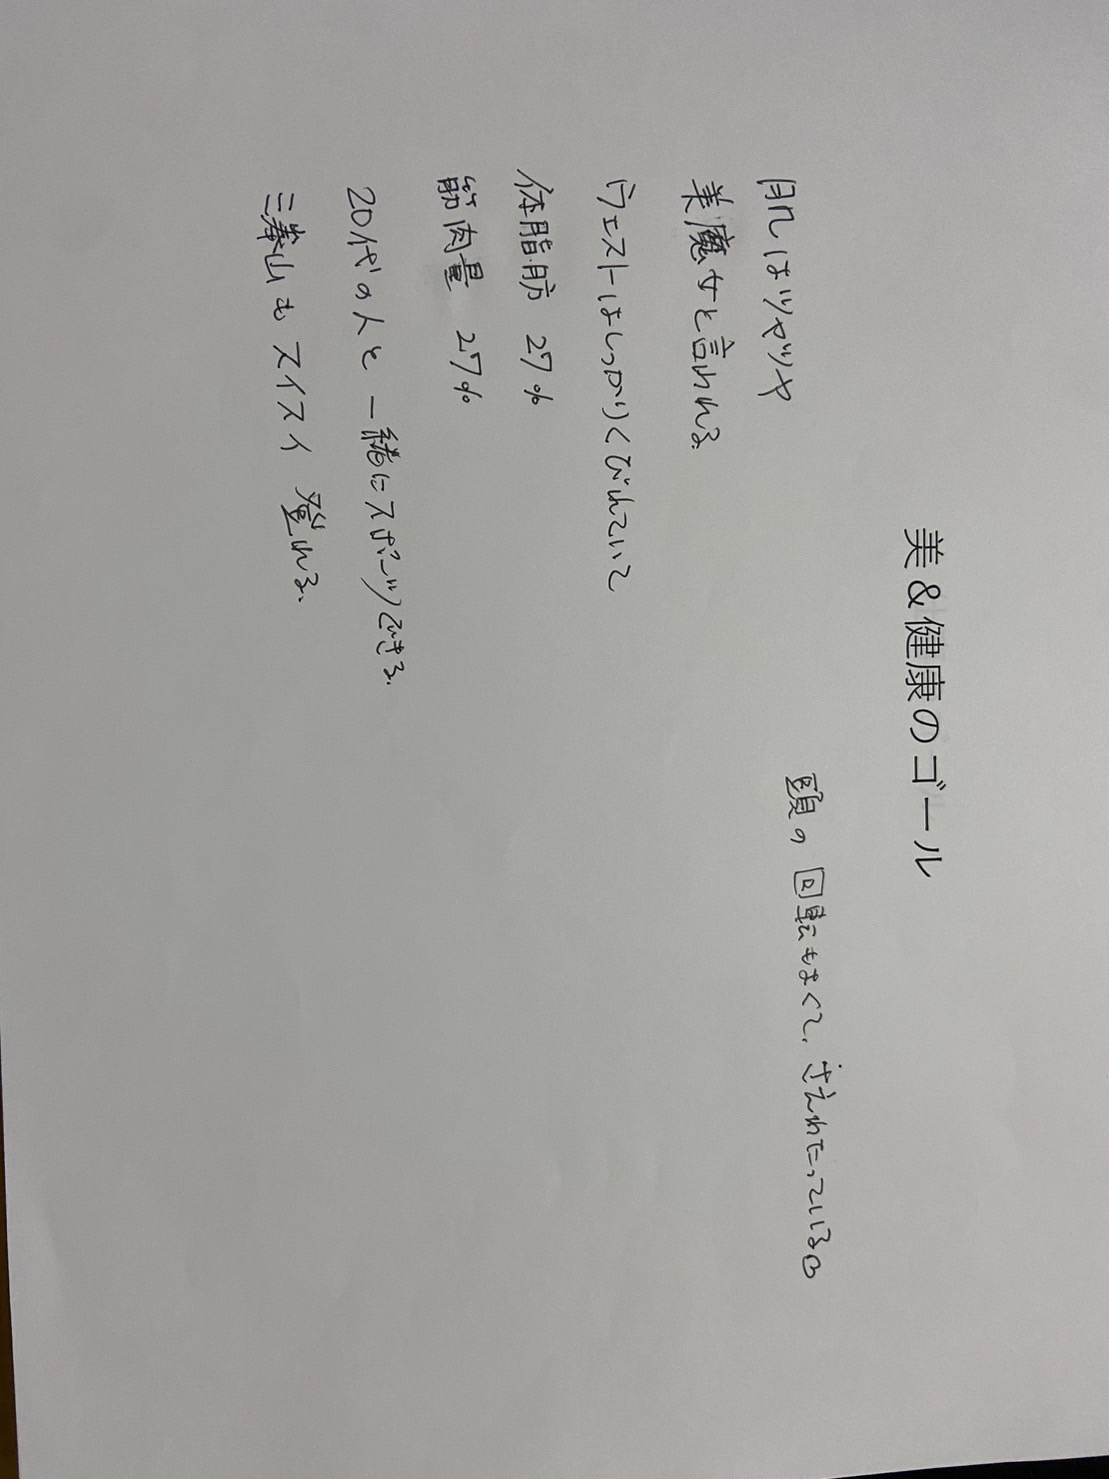 美&健康のゴール
肌はツヤツヤ
美魔女と言われる
ウエストはしっかりくびれていて
体脂肪 27%
筋肉量 27%
20代の人と一緒にスポーツできる.
三峯山もスイスイ登れる.
頭の回転もよくて、さえわたっている。